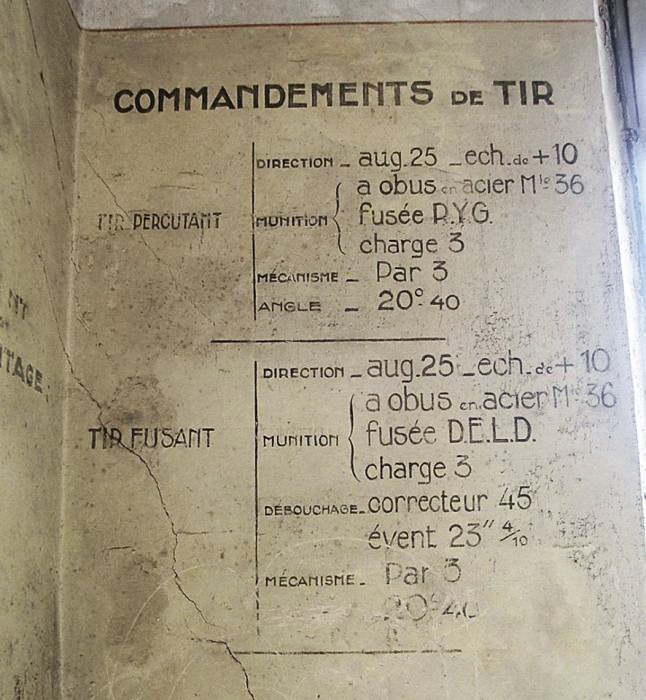 COMMANDEMENTS DE TIR
DIRECTION _ aug.25 _ech.de+10
a obus en acier Mle 36
TIR PERCUTANT MUNITION fusée R.Y.G.
charge 3
MÉCANISME _ Par 3
ANGLE _ 20° 40
DIRECTION _ aug.25 _ech.de+10
a obus en acier Mle 36
TIR FUSANT MUNITION fusée D.E.L.D.
charge 3
DÉBOUCHAGE_ correcteur 45
évent 23" 4/10
MÉCANISME _ Par 3
20° 40
TAGE